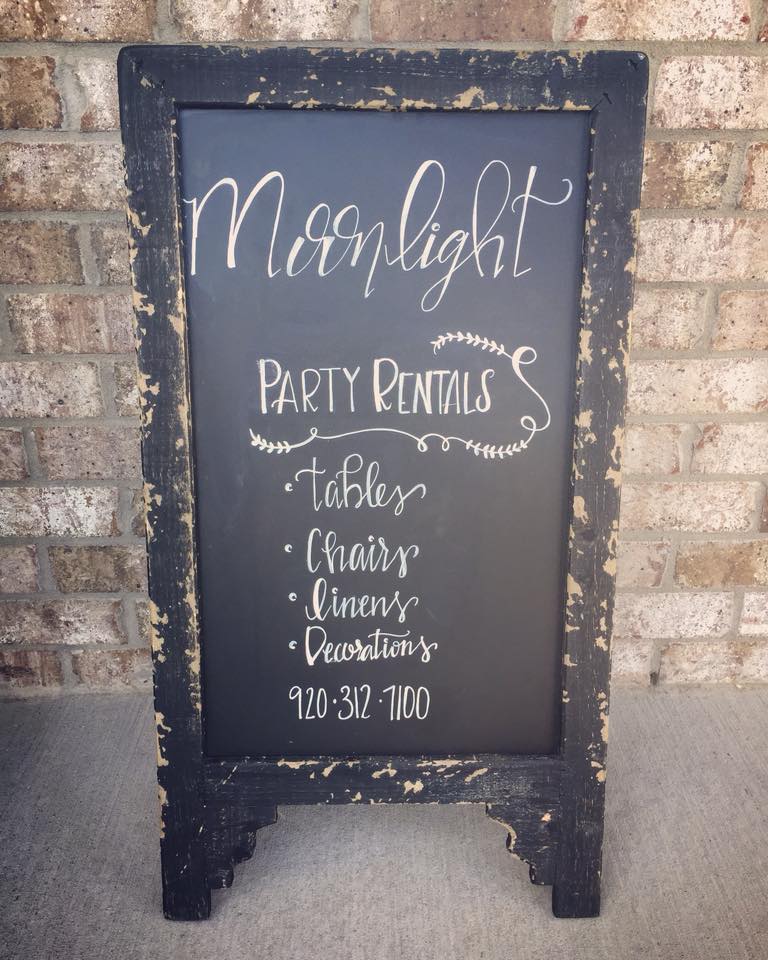 Moonlight
PARTY RENTALS
• tables
• Chairs
• linens
• Decorations
920•312•7100